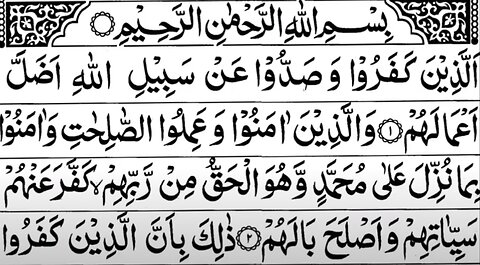 بِسْمِ اللهِ الرَّحْمٰنِ الرَّحِيْمِ
اَلَّذِيْنَ كَفَرُوْا وَ صَدُّوْا عَنْ سَبِيْلِ اللهِ اَضَلَّ
اَعْمَالَهُمْ ۝۱ وَالَّذِيْنَ اٰمَنُوْا وَ عَمِلُوا الصّٰلِحٰتِ وَ اٰمَنُوْا
بِمَا نُزِّلَ عَلٰى مُحَمَّدٍ وَّهُوَ الْحَقُّ مِنْ رَّبِّهِمْ ۙ كَفَّرَ عَنْهُمْ
سَيِّاٰتِهِمْ وَ اَصْلَحَ بَالَهُمْ ۝۲ ذٰلِكَ بِاَنَّ الَّذِيْنَ كَفَرُوا